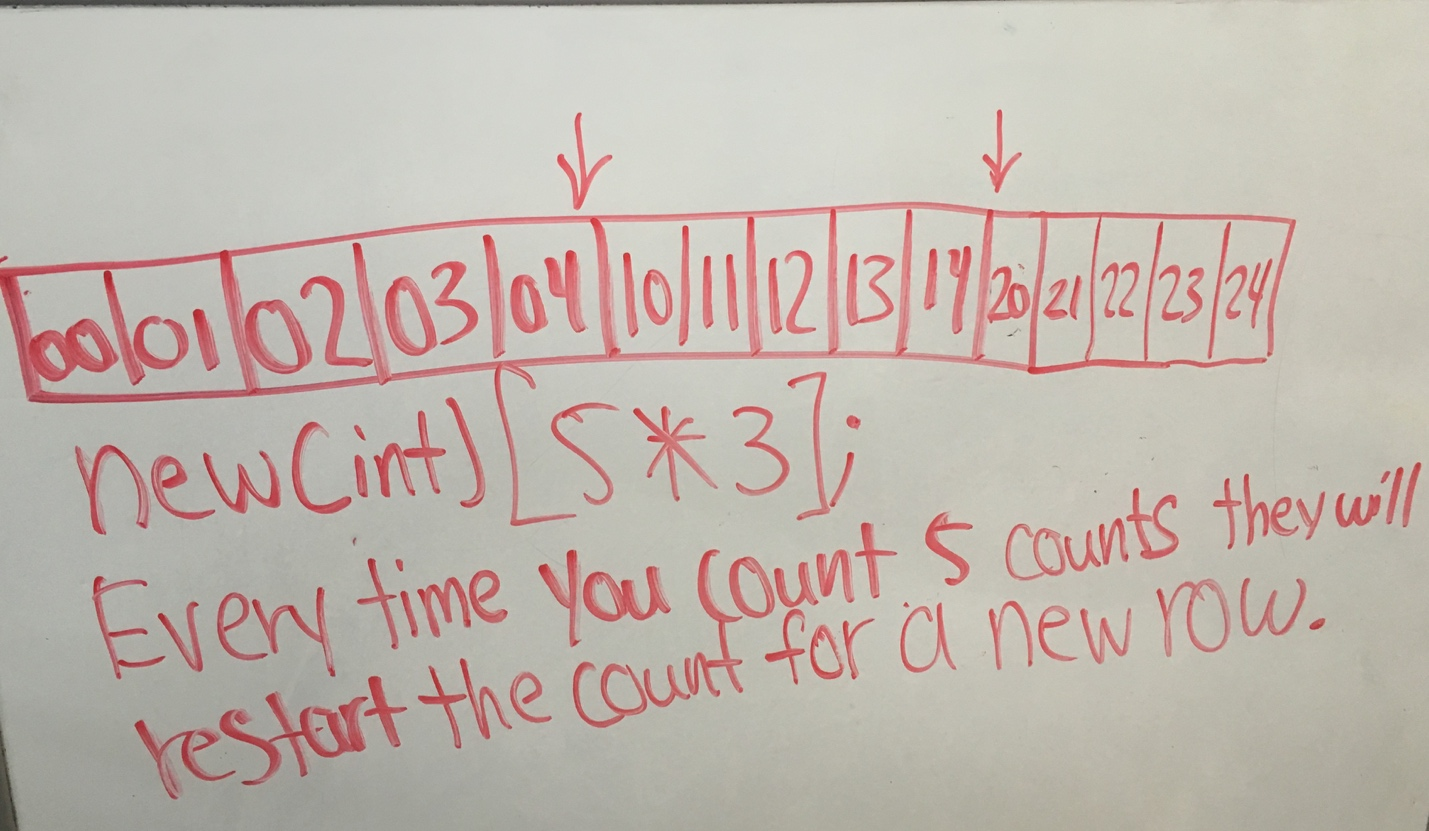 00 01 02 03 04 10 11 12 13 14 20 21 22 23 24
new(int)[5*3];
Every time you count 5 counts they will
restart the count for a new row.